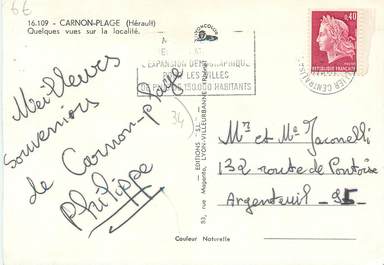 6€
16.109 - CARNON-PLAGE (Hérault)
Quelques vues sur la localité.
L'EXPANSION DEMOGRAPHIQUE
POUR LES VILLES
DE PLUS DE 150.000 HABITANTS
0,40
REPUBLIQUE FRANCAISE
Meilleurs
souvenirs
de Carnon-plage
Philippe
34
EDITIONS
83, rue Magenta, LYON-VILLEURBANNE
Mr et Me Jaconelli
132 route de Pontoise
Argenteuil - 95
Couleur Naturelle